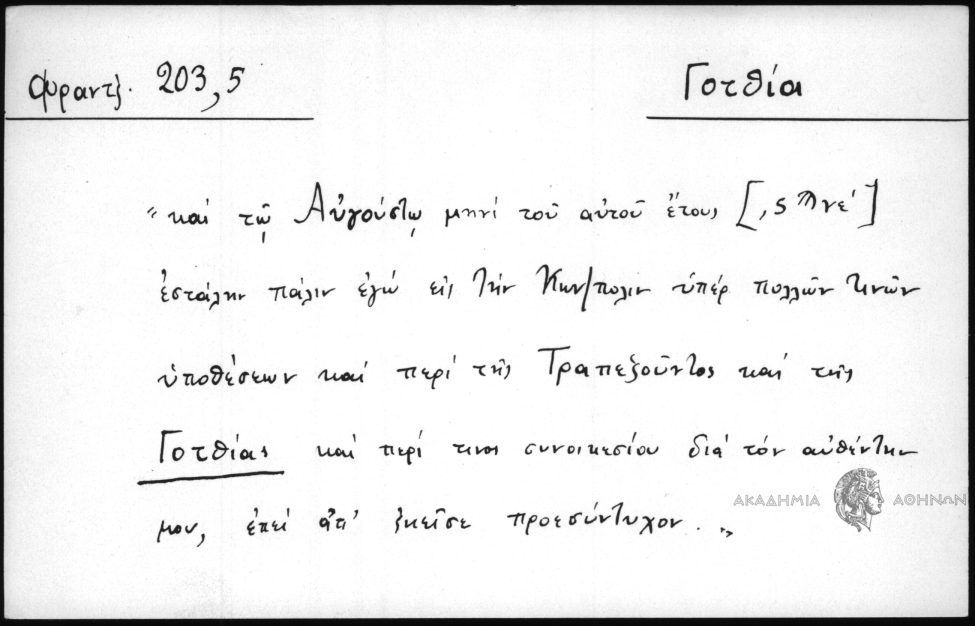 Φραντζ. 203,5
Γοτθία
"καί τῷ Αὐγούστῳ μηνί τοῦ αὐτοῦ ἔτους [,ςϡνε']
ἐστάλην πάλιν ἐγώ εἰς τήν Κων/πολιν ὑπέρ πολλῶν τινῶν
ὑποθέσεων καί περί τῆς Τραπεζοῦντος καί τῆς
Γοτθίας καί περί τινος συνοικεσίου διά τόν αὐθέντην
μου, ἐπεί ἀπ' ἐκεῖσε προεσύντυχον."
ΑΚΑΔΗΜΙΑ ΑΘΗΝΩΝ